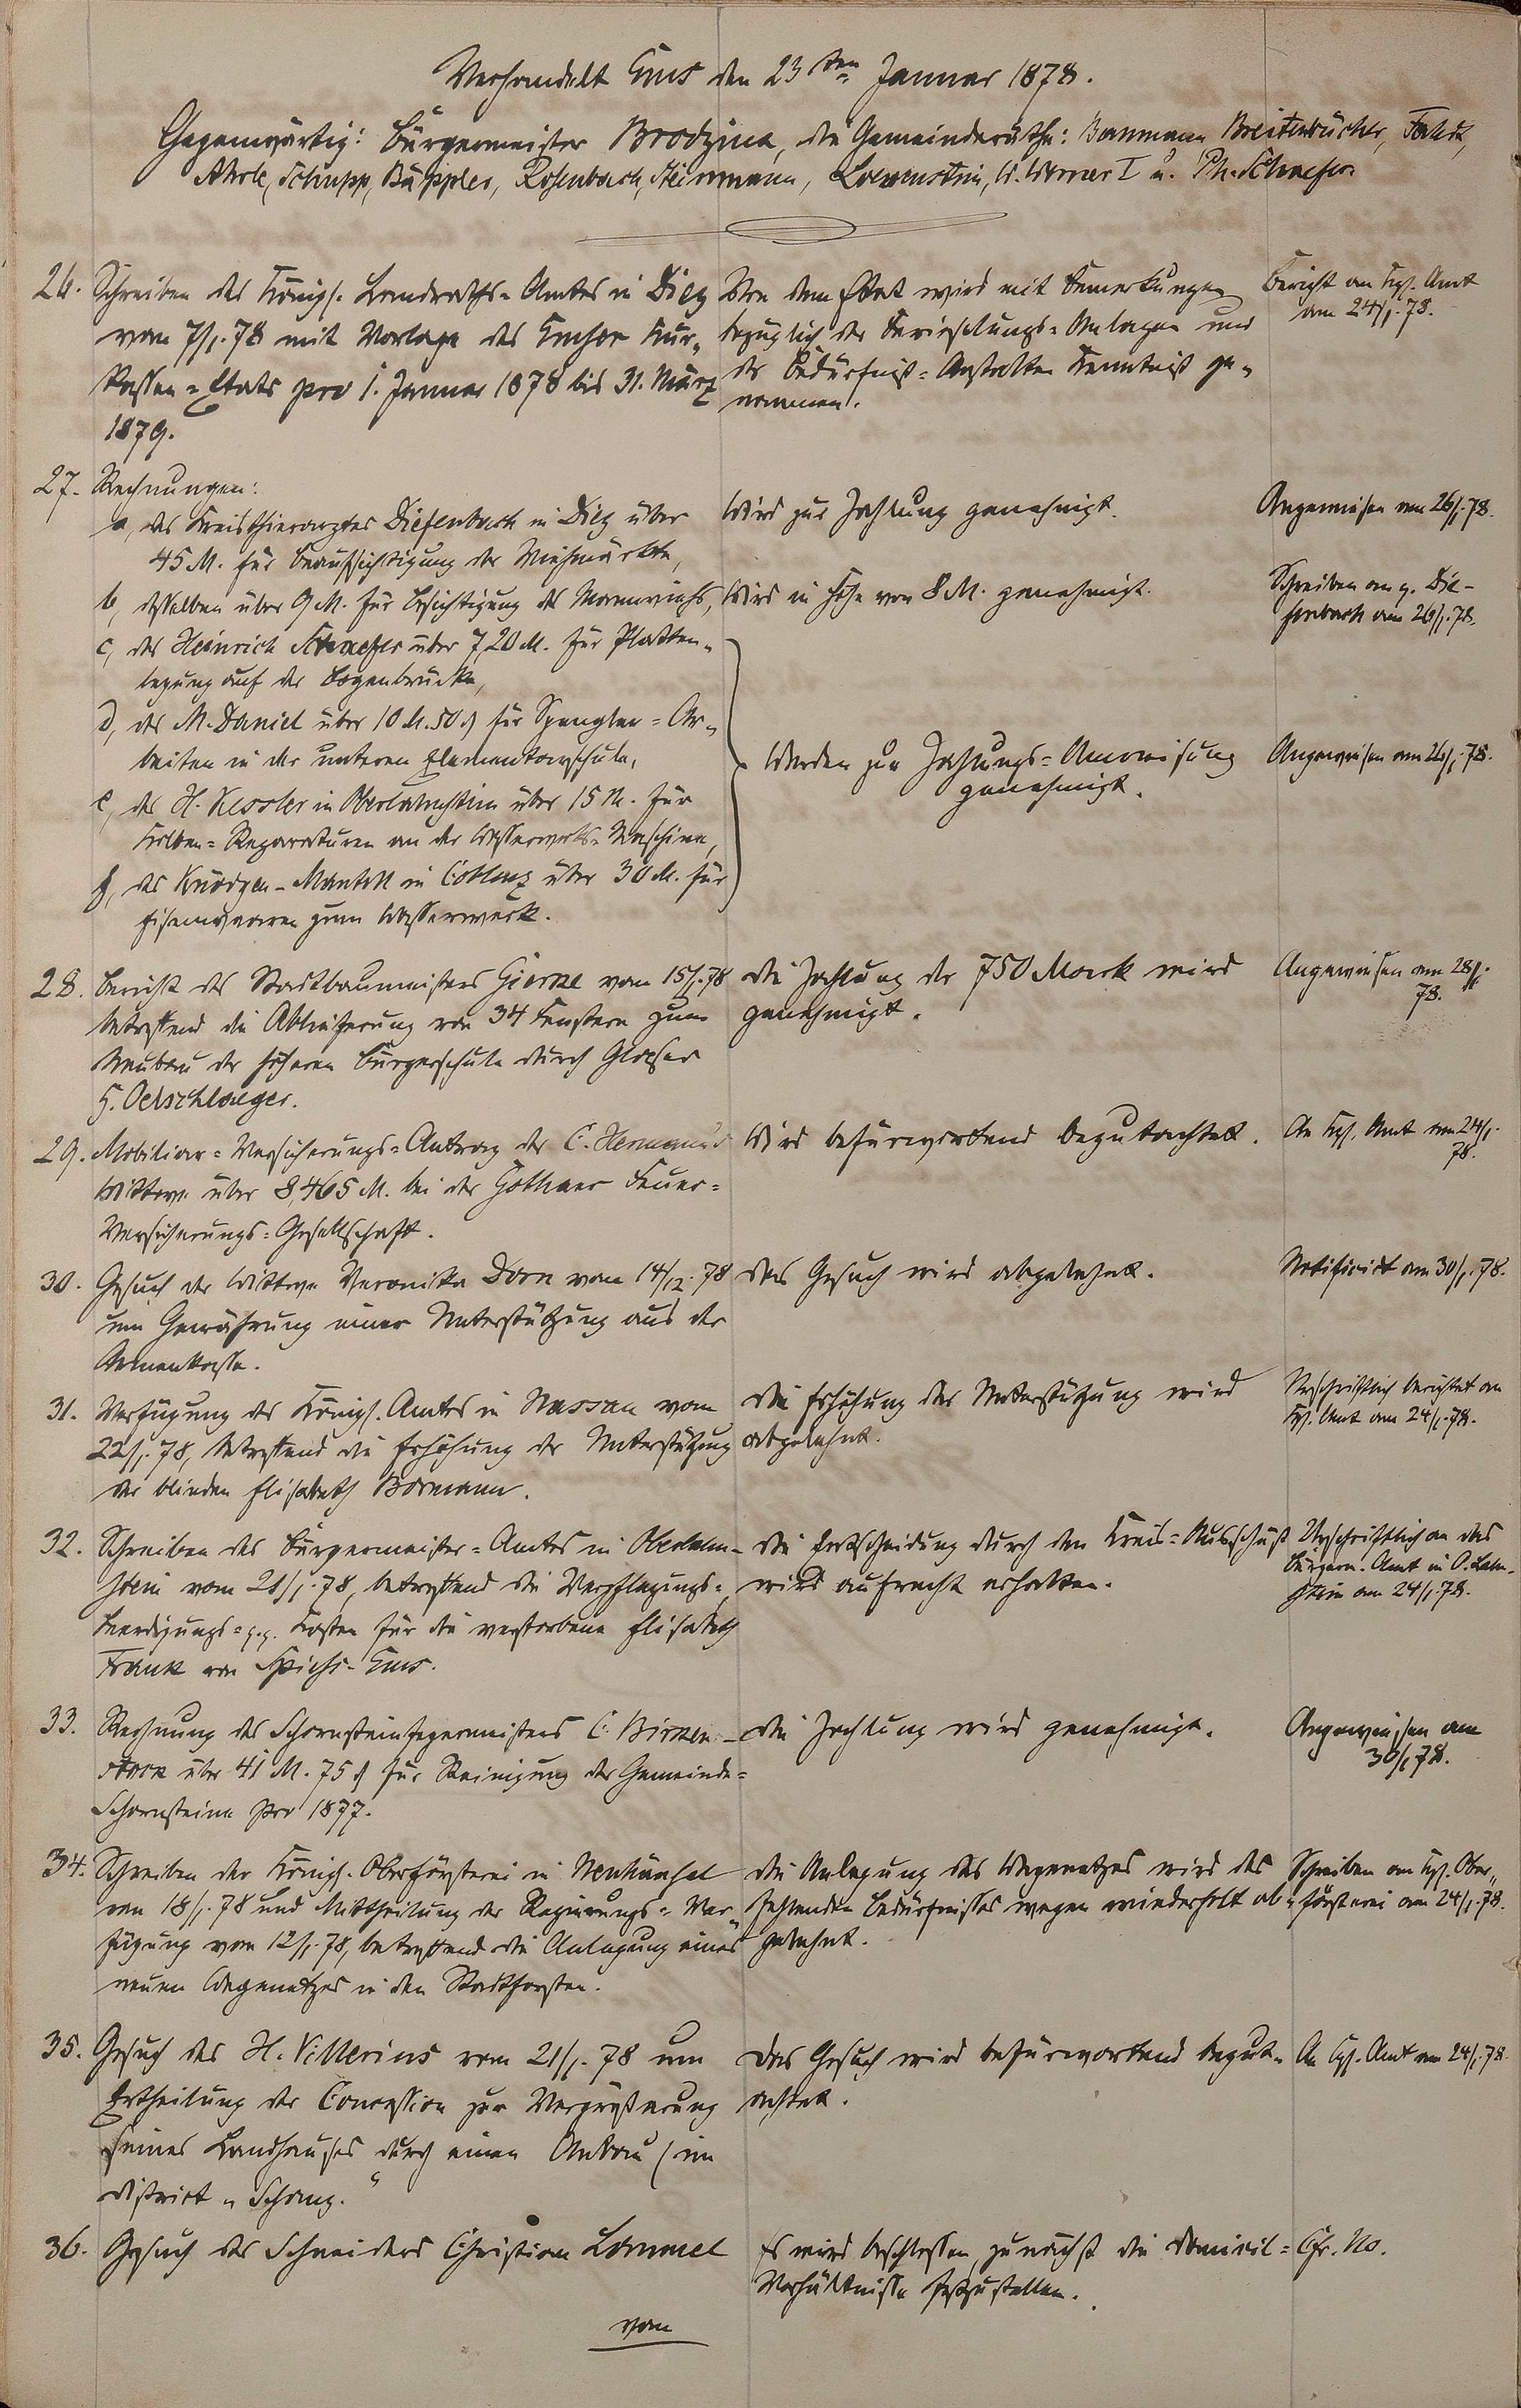 Verhandelt Ems den 23ten Januar 1878.
Gegenwärtig: Bürgermeister Brodzina, die Gemeinderäthe: Baumann, Breitenbücher, Fahdt,
Ahrle, Schupp, Bäppler, Rosenbach, Heinmann, Loewenstein, W. Werner I u. Ph. Schaefer
26. Schreiben des Königl. Landraths=Amtes in Diez
vom 7/1.78 mit Vorlage des Emser Kur„
kassen=Etats pro 1. Januar 1878 bis 31. März
1879.
Von dem Etat wird mit Bemerkungen
bezüglich der Berieselungs=Anlagen und
der Bedürfniß=Anstalten Kenntniß ge„
nommen.
Bericht an Kgl. Amt
am 24/1.78.
27. Rechnungen:
a, des Kreisthierarztes Diefenbach in Diez über
45 M. für Beaufsichtigung der Viehmärkte,
Wird zur Zahlung genehmigt.
Angewiesen am 26/1.78.
b, desselben über 9 M. für Besichtigung des Marmviehs,
Wird in Höhe von 8 M. genehmigt.
Schreiben an p. Die-
fenbach am 26/1.78.
c, des Heinrich Schaefer über 7,20 M. für Platten„
legung auf der Bogenbrücke,
d, des M. Daniel über 10 M. 50 ₰ für Spengler=Ar„
beiten in der unteren Elementarschule,
e, des H. Kessler in Oberlahnstein über 15 M. für
Kolben=Reparaturen an der Wasserwerks=Maschine,
f, des Knödgen-Mantell in Coblenz über 30 M. für
Eisenwaaren zum Wasserwerk.
Werden zur Zahlungs=Anweisung
genehmigt.
Angewiesen am 26/1.78.
28. Bericht des Stadtbaumeisters Gierke vom 15/1.78
betreffend die Ablieferung von 34 Fenstern zum
Neubau der höheren Bürgerschule durch Glaser
H. Oelschlaeger.
Die Zahlung der 750 Mark wird
genehmigt.
Angewiesen am 28/1.
78.
29. Mobiliar=Versicherungs=Antrag der C. Hermann's
Wittwe über 8,465 M. bei der Gothaer Feuer=
Versicherungs=Gesellschaft.
Wird befürwortend begutachtet.
An Kgl. Amt am 24/1.
78.
30. Gesuch der Wittwe Veronika Dorn vom 14/12.78
um Gewährung einer Unterstützung aus der
Armenkasse.
Das Gesuch wird abgelehnt.
Notificirt am 30/1.78.
31. Verfügung des Königl. Amtes in Nassau vom
22/1.78, betreffend die Erhöhung der Unterstützung
der blinden Elisabeth Bormann.
Die Erhöhung der Unterstützung wird
abgelehnt.
Urschriftlich berichtet an
Kgl. Amt am 24/1.78.
32. Schreiben des Bürgermeister=Amtes in Oberlahn-
stein vom 21/1.78, betreffend die Verpflegungs=,
Beerdigungs= p.p. Kosten für die verstorbene Elisabeth
Frank von Spieß-Ems.
Die Entscheidung durch den Kreis=Ausschuß
wird aufrecht erhalten.
Urschriftlich an das
Bürgerm. Amt in O.Lahn-
stein am 24/1.78.
33. Rechnung des Schornsteinfegermeisters C. Birken-
stock über 41 M. 75 ₰ für Reinigung der Gemeinde=
Schornsteine pro 1877.
Die Zahlung wird genehmigt.
Angewiesen am
30/1.78.
34. Schreiben der Königl. Oberförsterei in Neuhäusel
vom 18/1.78 und Mittheilung der Regierungs=Ver„
fügung vom 12/1.78, betreffend die Anlegung eines
neuen Wegenetzes in den Stadtforsten.
Die Anlegung des Wegenetzes wird des
fehlenden Bedürfnisses wegen wiederholt ab„
gelehnt.
Schreiben an Kgl. Ober„
försterei am 24/1.78.
35. Gesuch des H. Vitterius vom 21/1.78 um
Ertheilung der Concession zur Vergrößerung
seines Landhauses durch einen Anbau (im
District „Schanz."
Das Gesuch wird befürwortend begut=
achtet.
An Kgl. Amt am 24/1.78.
36. Gesuch des Schneiders Christian Lommel
Es wird beschlossen, zunächst die Domicil=
Verhältnisse festzustellen.
Cfr. No.
vom